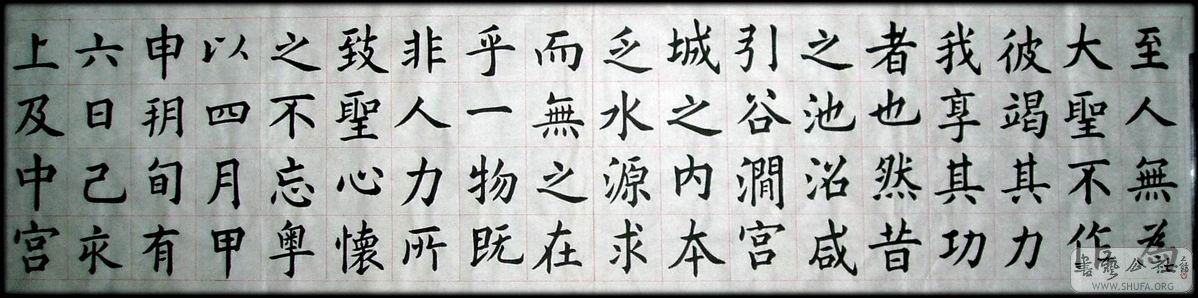 至人無為
大聖不作
彼竭其力
我享其功
者也然昔
之池沼咸
引谷澗宮
城之內本
乏水源求
而無之在
乎一物既
非人力所
致聖心懷
之不忘粵
以四月甲
申朔旬有
六日己亥
上及中宮
書藝公社
WWW.SHUFA.ORG